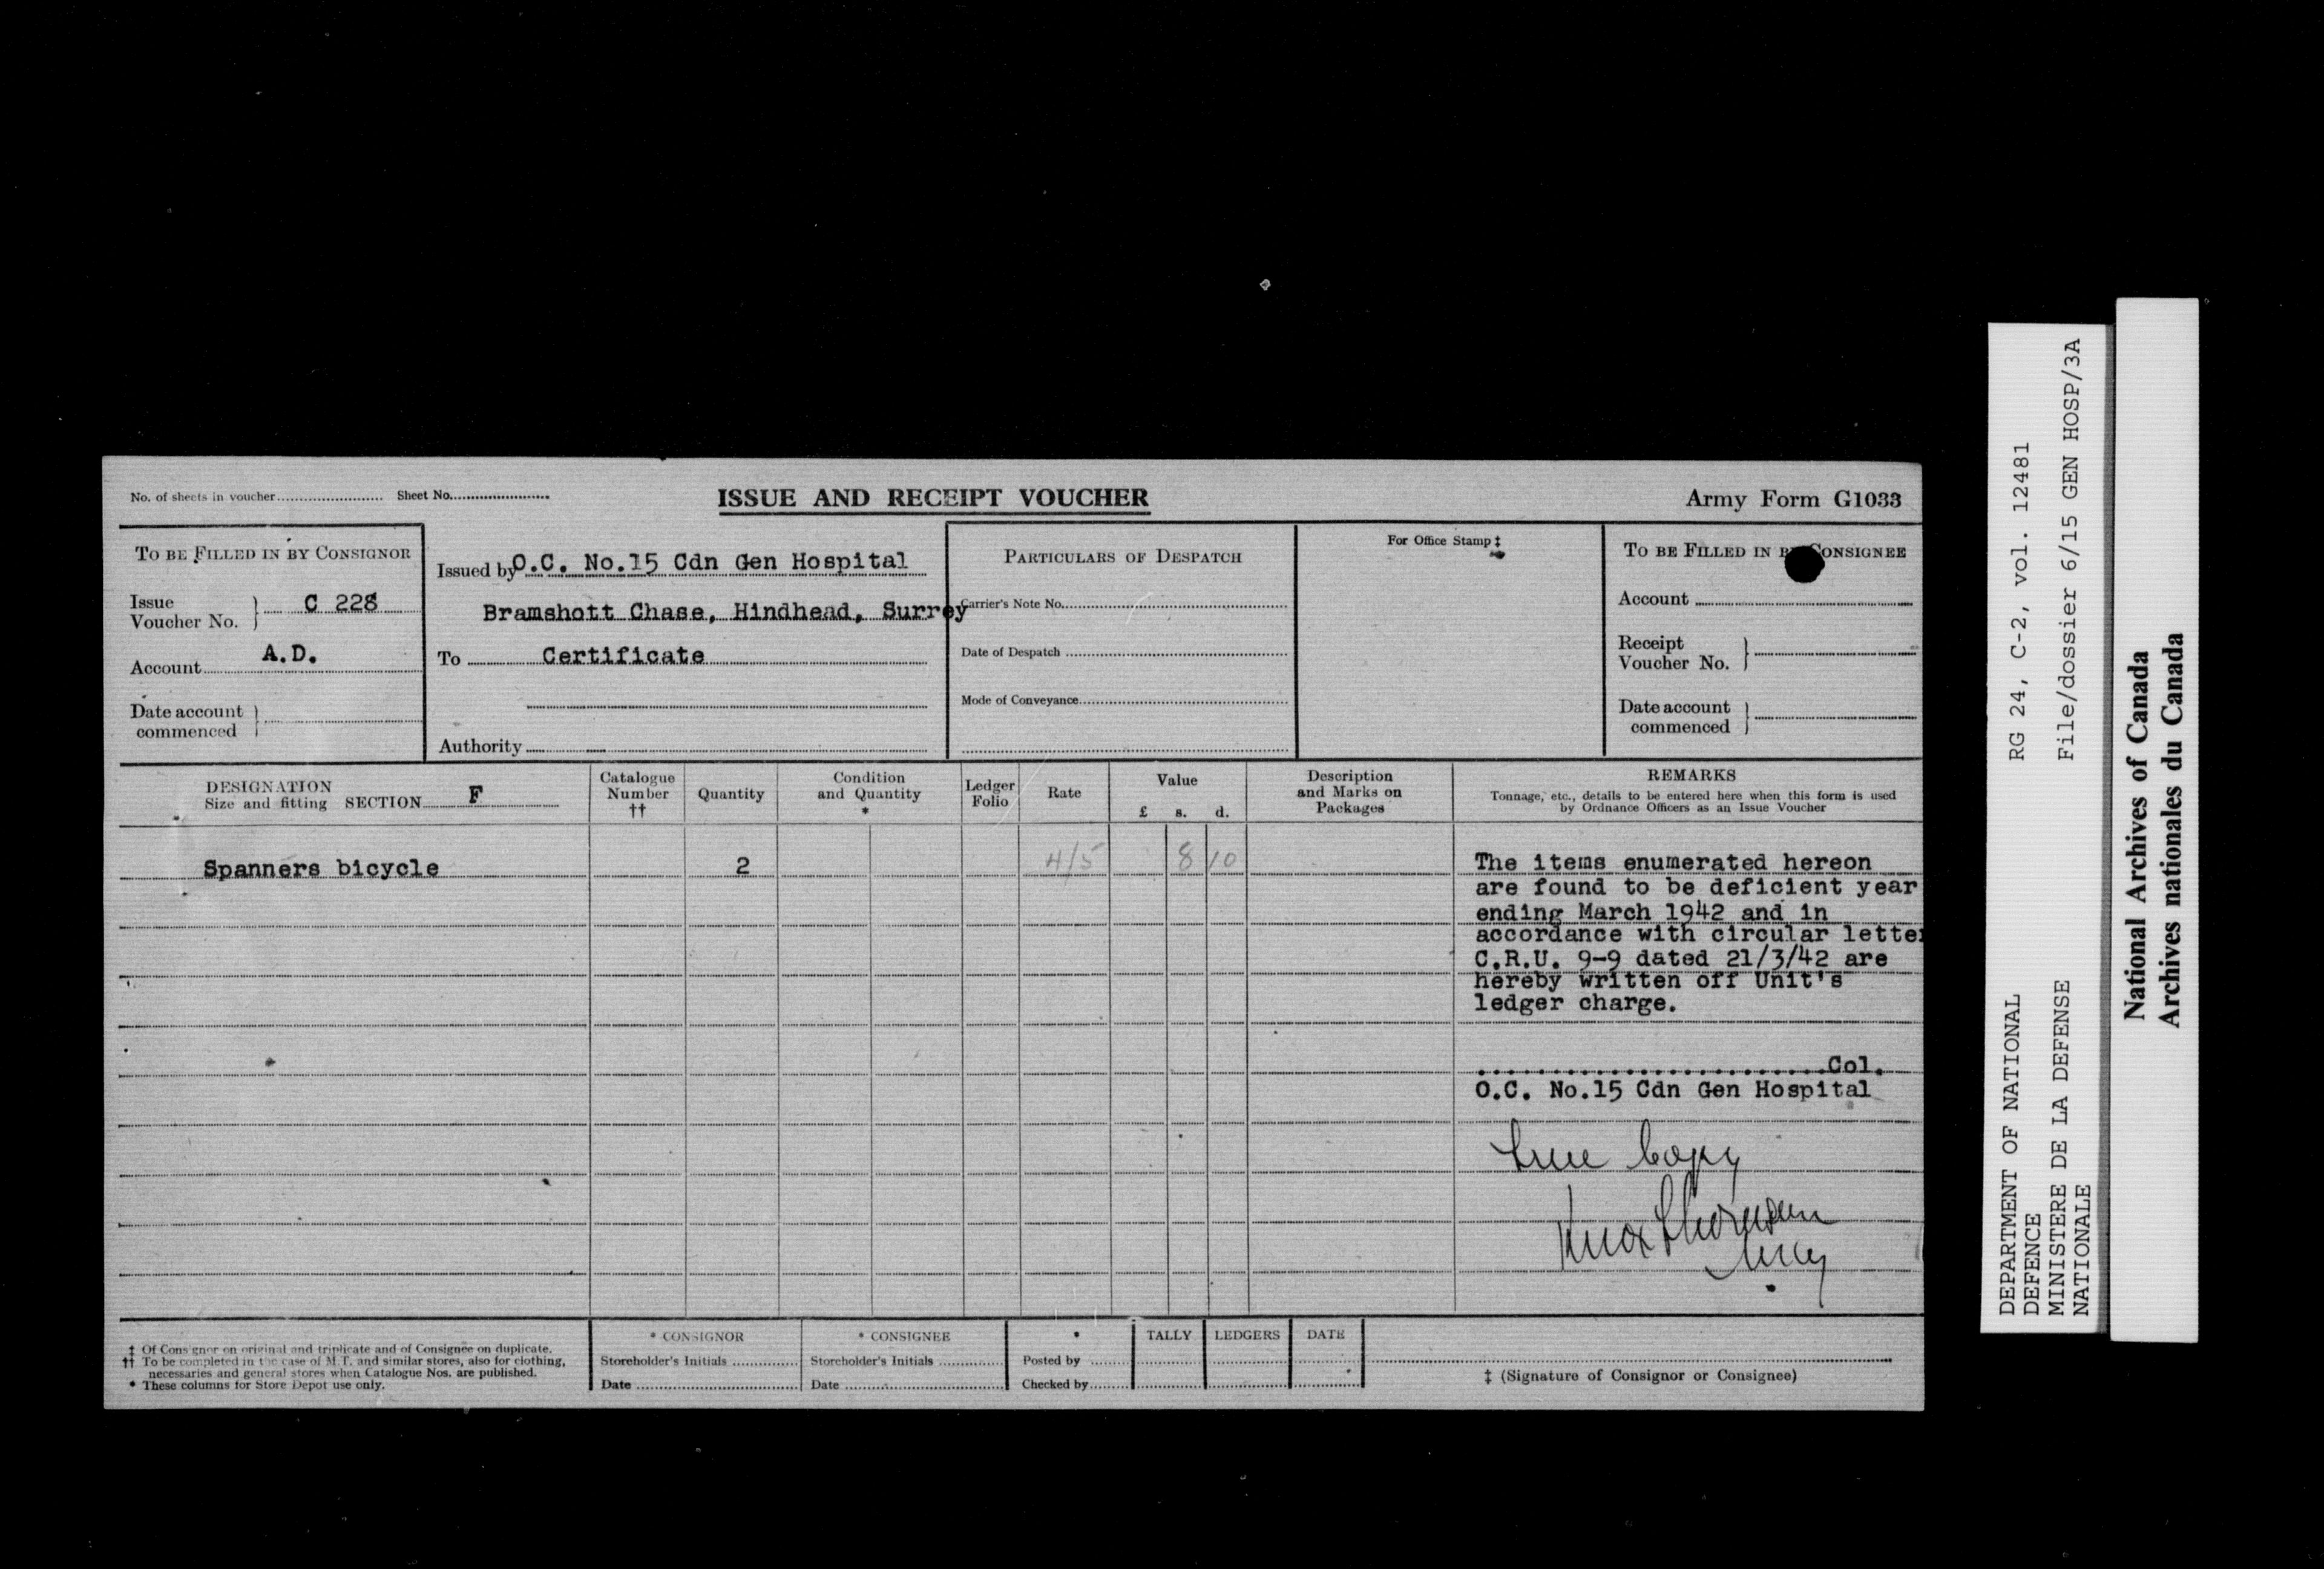 No. of sheets in voucher........ Sheet No........
ISSUE AND RECEIPT VOUCHER
Army Form G1033
TO BE FILLED IN BY CONSIGNOR
Issue Voucher No. } C 228
Account A.D.
Date account commenced }
Issued by O.C. No.15 Cdn Gen Hospital
Bramshott Chase, Hindhead, Surrey
To Certificate
Authority
PARTICULARS OF DESPATCH
Carrier's Note No.
Date of Despatch
Mode of Conveyance
For Office Stamp ‡
TO BE FILLED IN BY CONSIGNEE
Account
Receipt Voucher No. }
Date account commenced }
DESIGNATION
Size and fitting SECTION F
Catalogue Number ††
Quantity
Condition and Quantity *
Ledger Folio
Rate
Value
£ s. d.
Description and Marks on Packages
REMARKS
Tonnage, etc., details to be entered here when this form is used
by Ordnance Officers as an Issue Voucher
Spanners bicycle 2 4/5 8 10
The items enumerated hereon
are found to be deficient year
ending March 1942 and in
accordance with circular letter
C.R.U. 9-9 dated 21/3/42 are
hereby written off Unit's
ledger charge.
........................Col.
O.C. No.15 Cdn Gen Hospital
True Copy
‡ Of Consignor on original and triplicate and of Consignee on duplicate.
†† To be completed in the case of M.T. and similar stores, also for clothing,
necessaries and general stores when Catalogue Nos. are published.
* These columns for Store Depot use only.
* CONSIGNOR
Storeholder's Initials
Date
* CONSIGNEE
Storeholder's Initials
Date
*
Posted by
Checked by
TALLY
LEDGERS
DATE
‡ (Signature of Consignor or Consignee)
DEPARTMENT OF NATIONAL
DEFENCE
MINISTERE DE LA DEFENSE
NATIONALE
RG 24, C-2, vol. 12481
File/dossier 6/15 GEN HOSP/3A
National Archives of Canada
Archives nationales du Canada